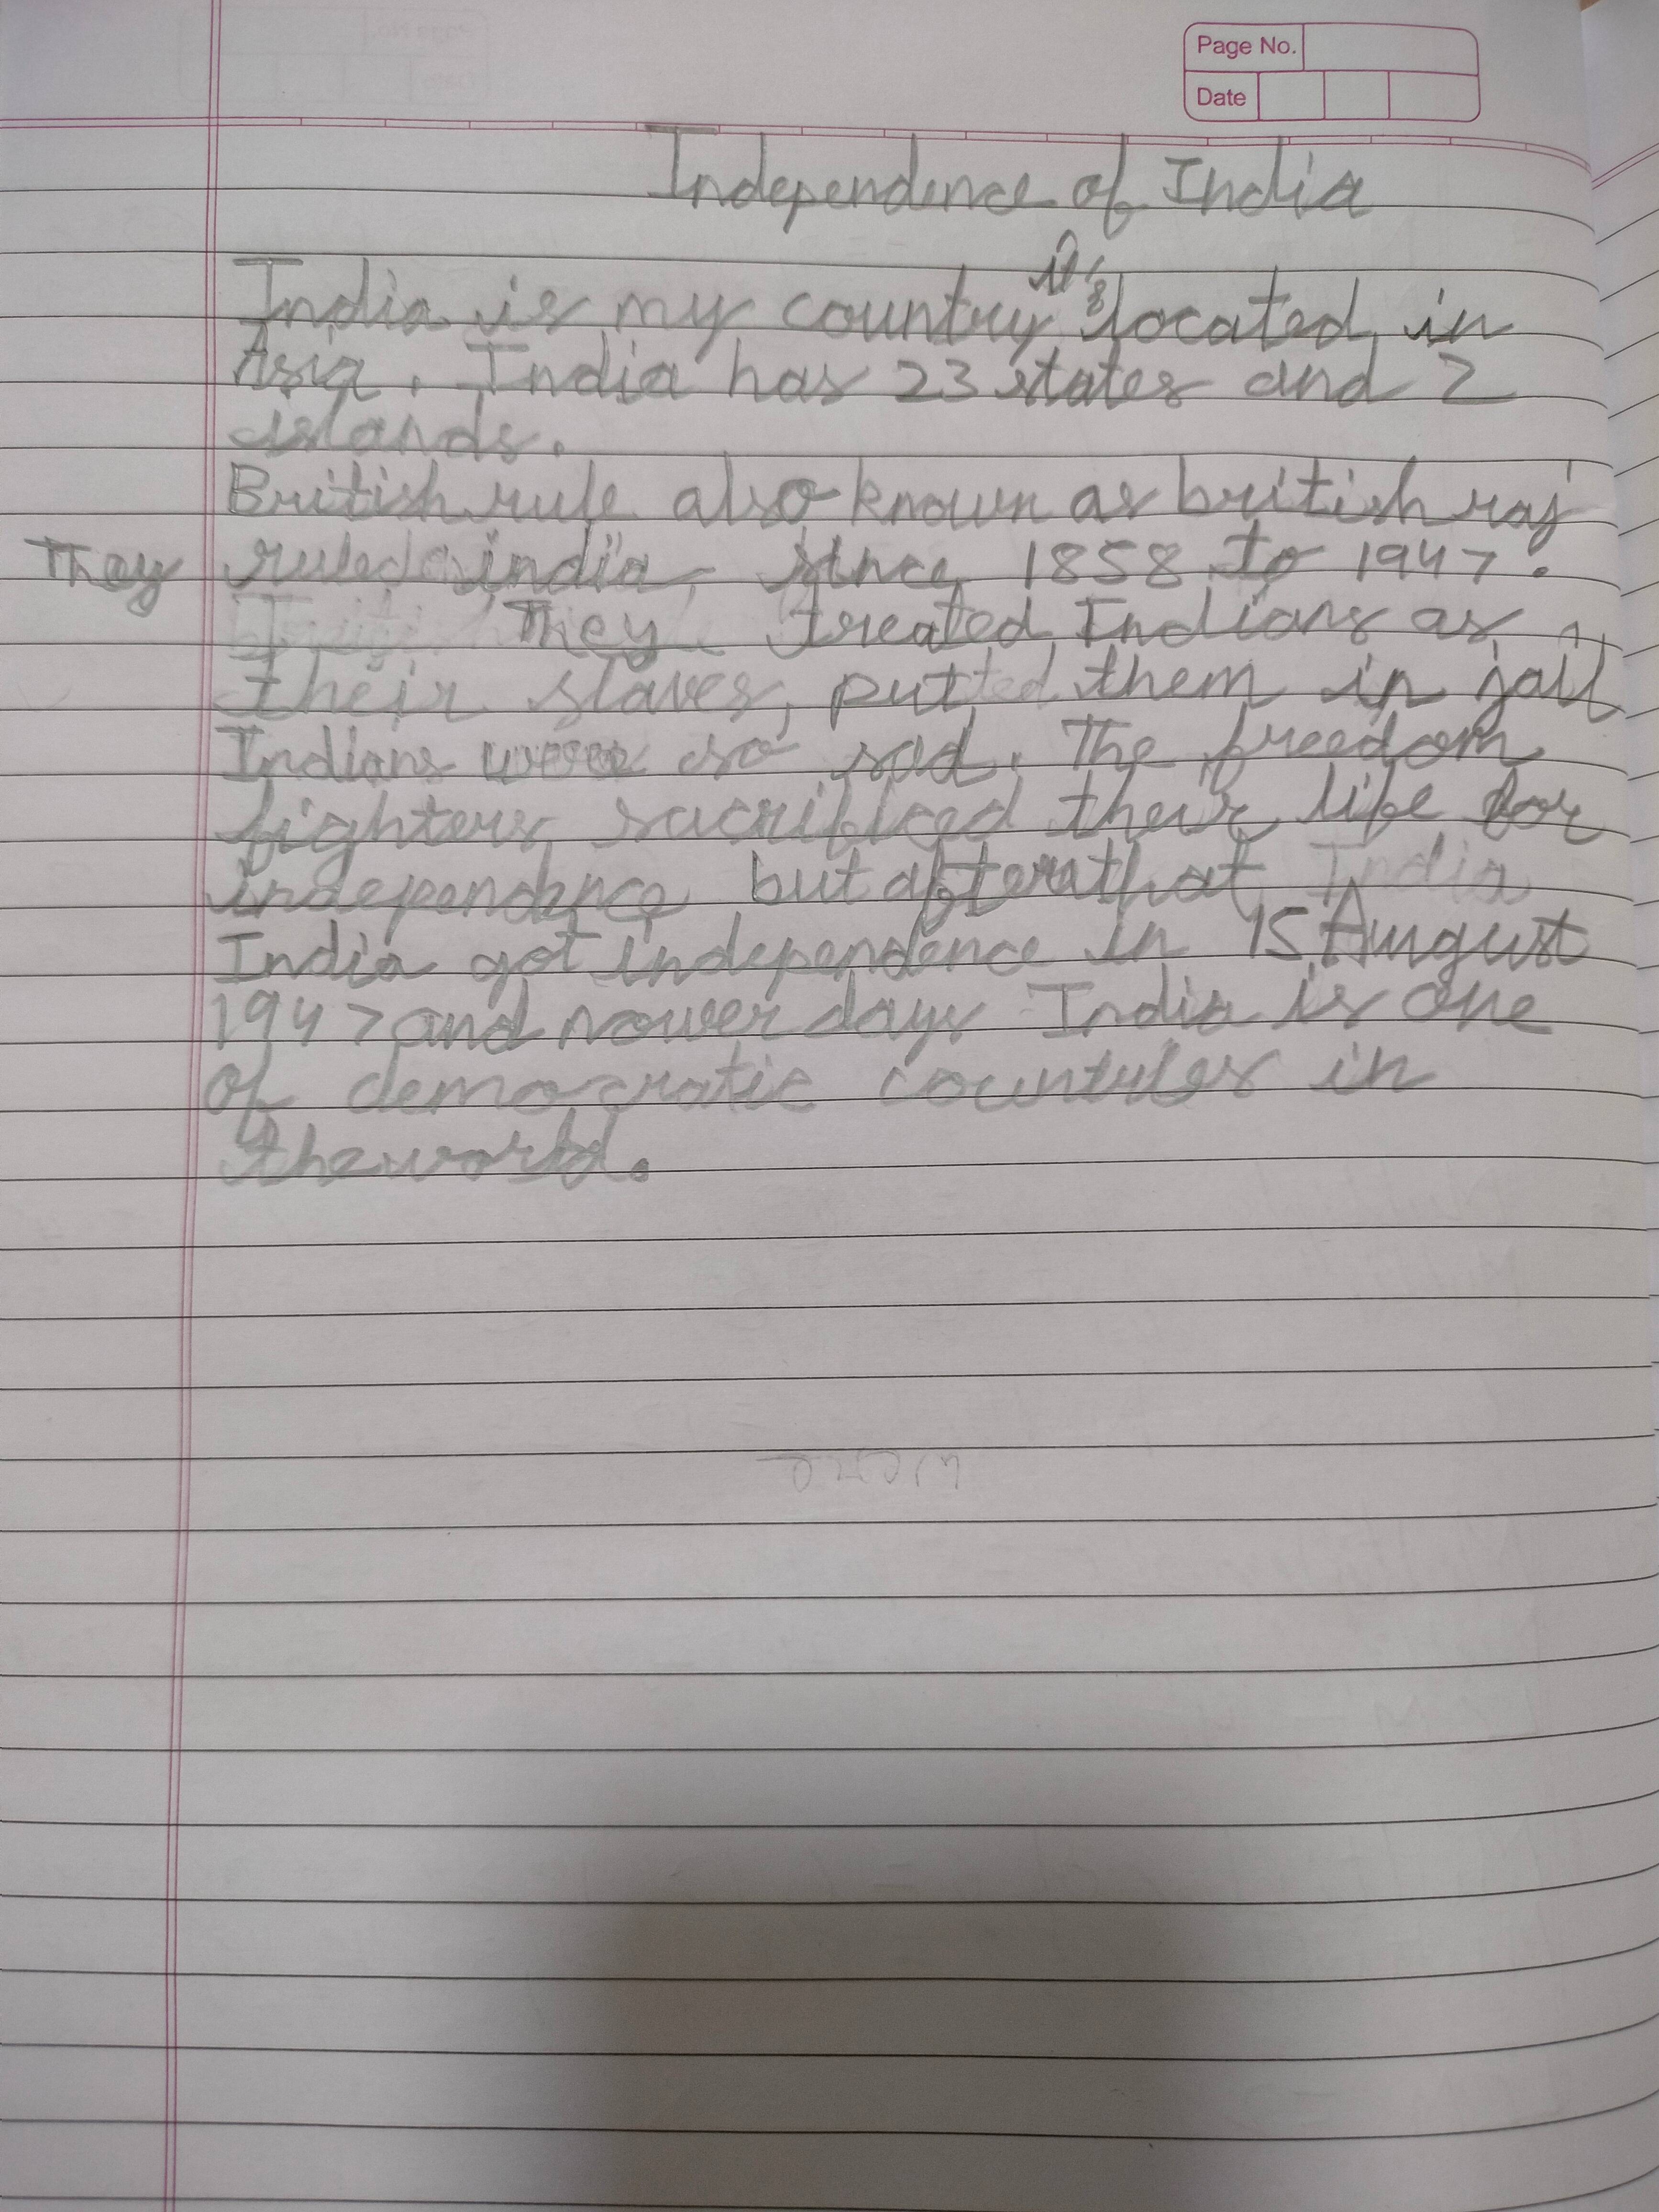 Page No.
Date
Independence of India
India is my country it's located in
Asia. India has 23 states and 2
islands.
British rule also known as british raj
They ruled india since 1858 to 1947.
They treated Indians as
their slaves, putted them in jail
Indians were so sad. The freedom
fighters sacrificed their life for
independence but after that India
India got independence in 15 August
1947 and nower days India is one
of democratic countries in
the world.